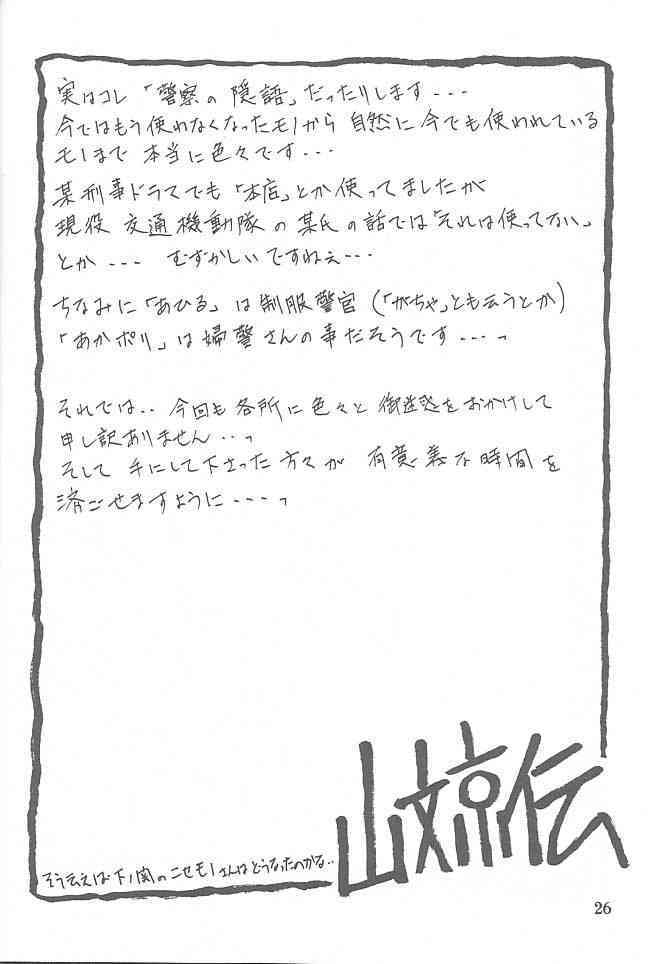 実はコレ「警察の隠語」だったりします・・・
今ではもう使われなくなったモノから 自然に今でも使われている
モノまで 本当に色々です・・・
某刑事ドラマでも「本店」とか使ってましたが
現役 交通機動隊の某氏の話では「それは使ってない」
とか・・・ むずかしいですねぇ・・・
ちなみに「あひる」は制服警官（「がちゃ」とも云うとか）
「あかポリ」は婦警さんの事だそうです・・・っ
それでは・・ 今回も各所に色々と 御迷惑をおかけして
申し訳ありません・・っ
そして 手にして下さった方々が 有意義な時間を
済ごせますように・・・っ
山文京伝
そう云えば下ノ関のニセモノさんはどうなったのかな・・
26